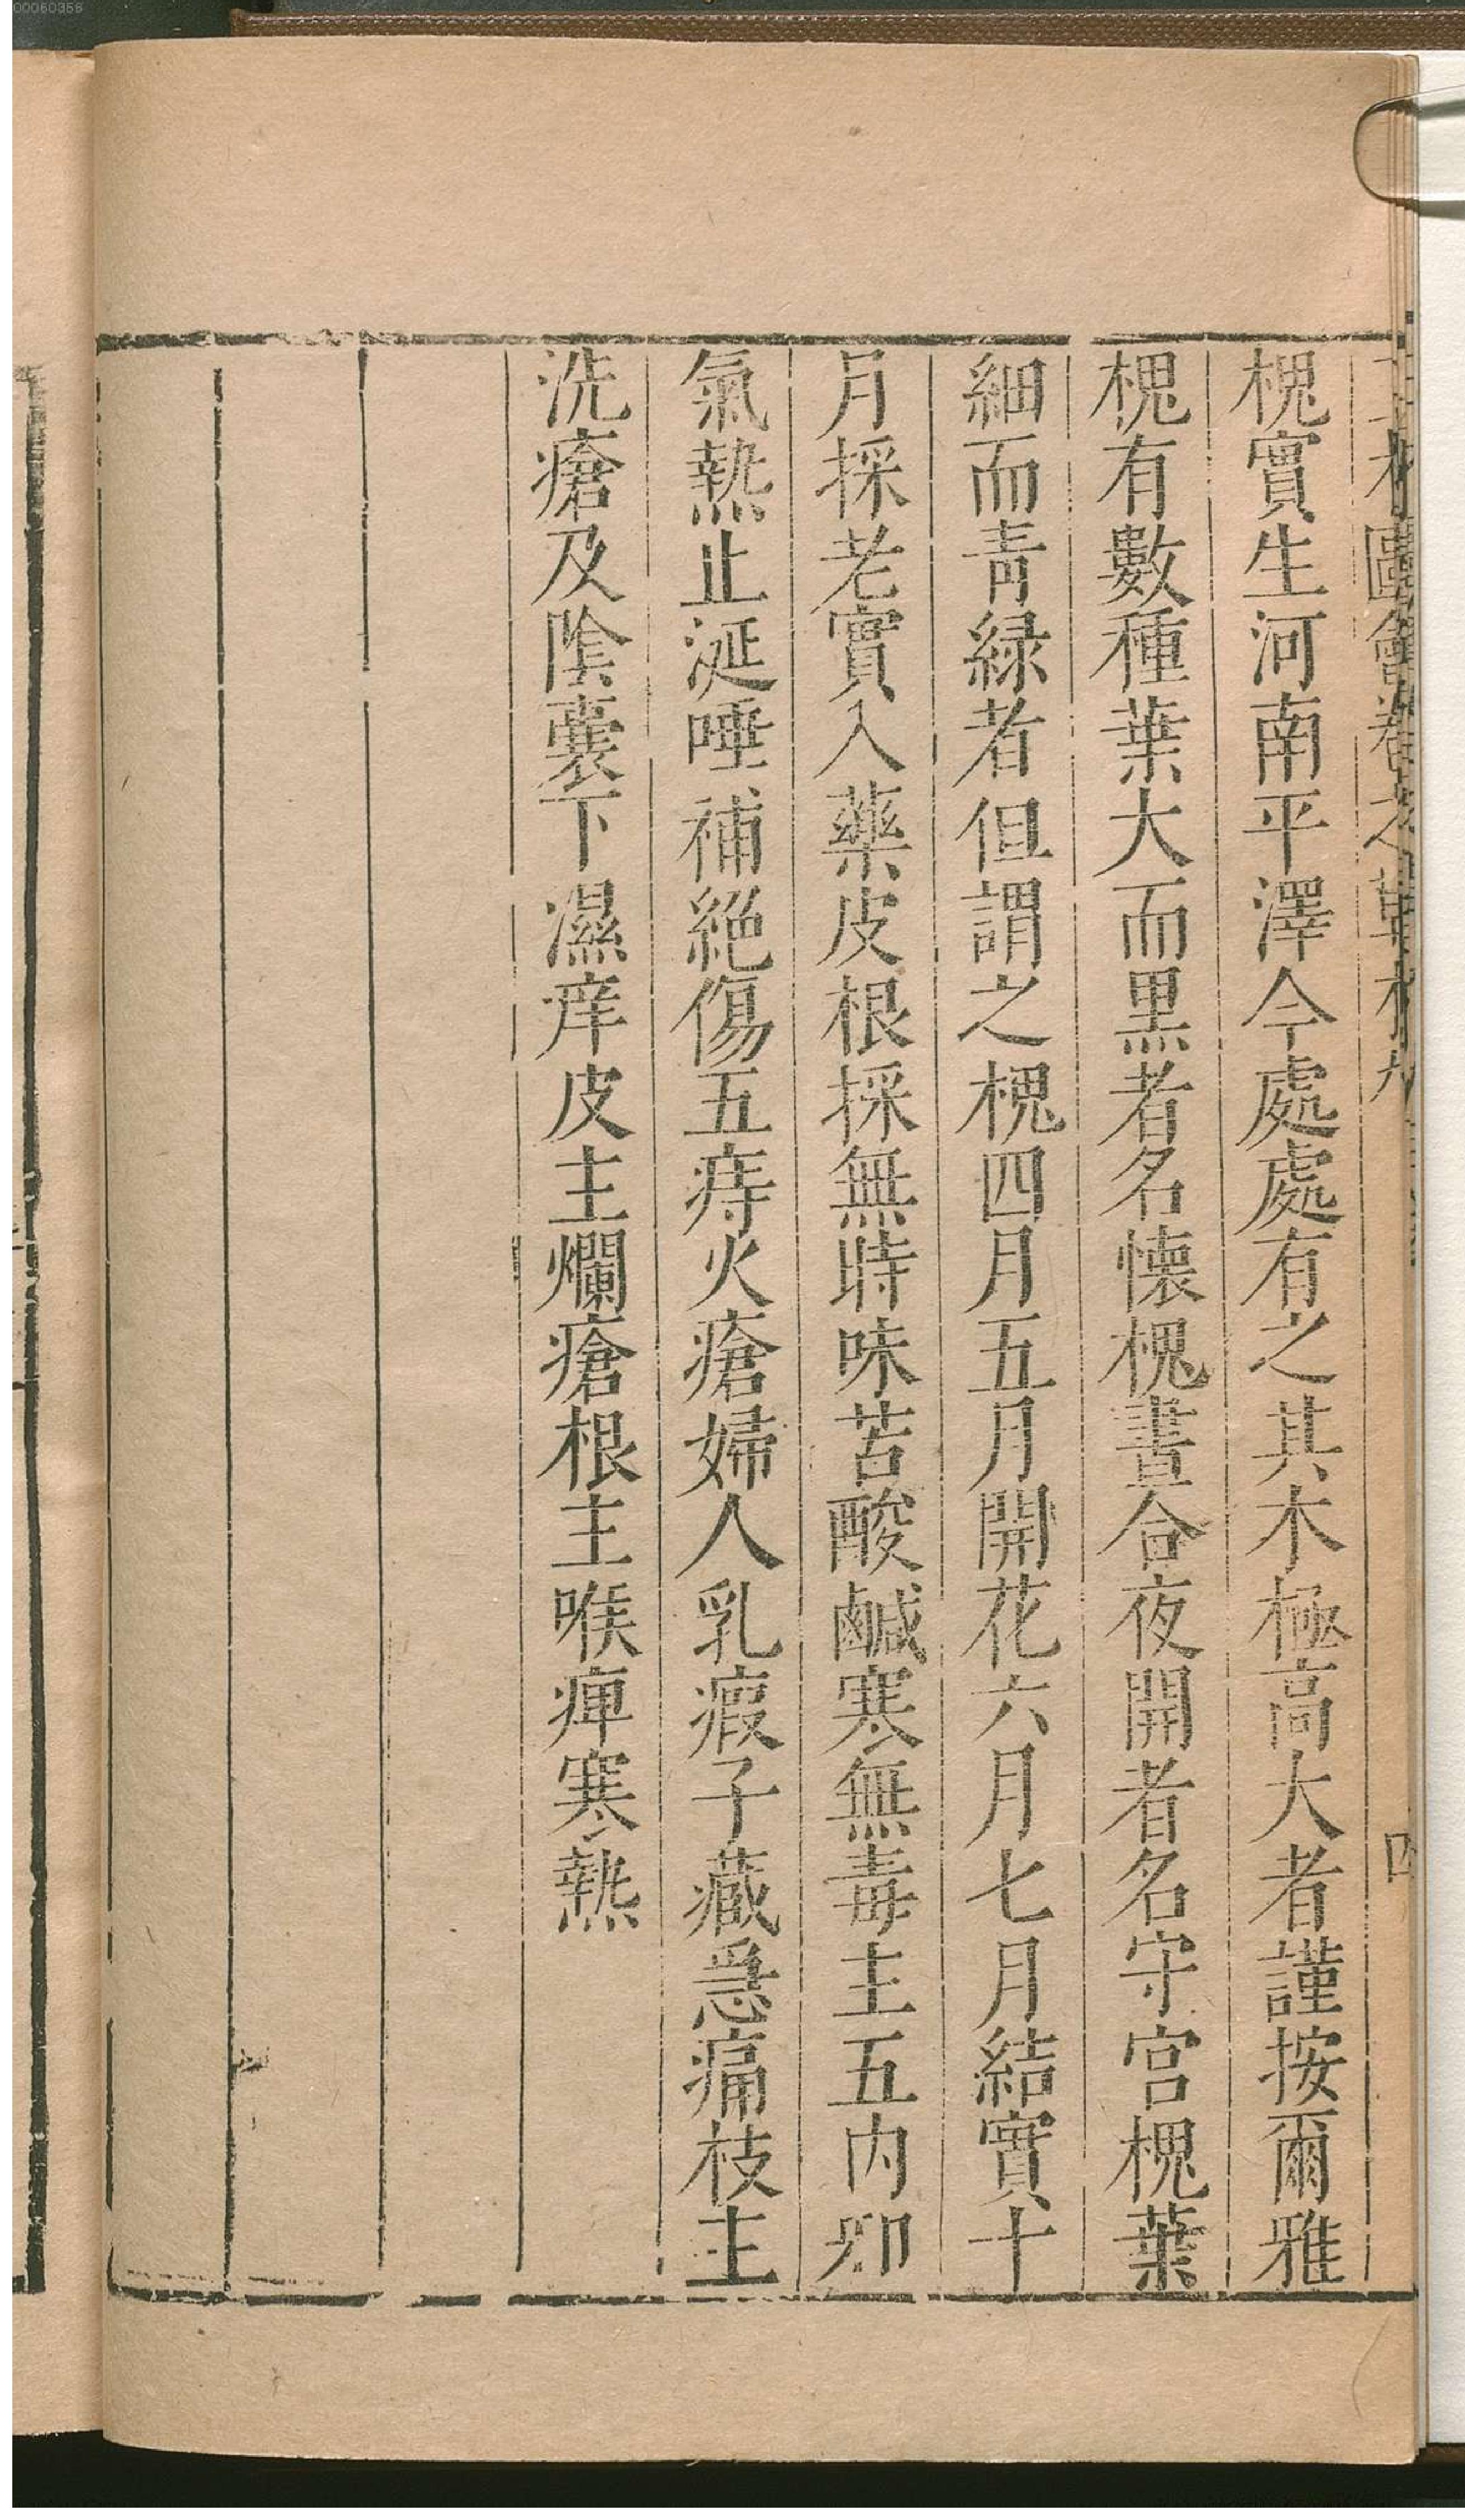 00060356
圖會卷之草木九
四
槐實生河南平澤今處處有之其木極高大者謹按爾雅
槐有數種葉大而黑者名懷槐晝合夜開者名守宮槐葉
細而青緑者但謂之槐四月五月開花六月七月結實十
月採老實入藥皮根採無時味苦酸鹹寒無毒主五内邪
氣熱止涎唾補絕傷五痔火瘡婦人乳瘕子藏急痛枝主
洗瘡及陰囊下濕痒皮主爛瘡根主喉痺寒熱